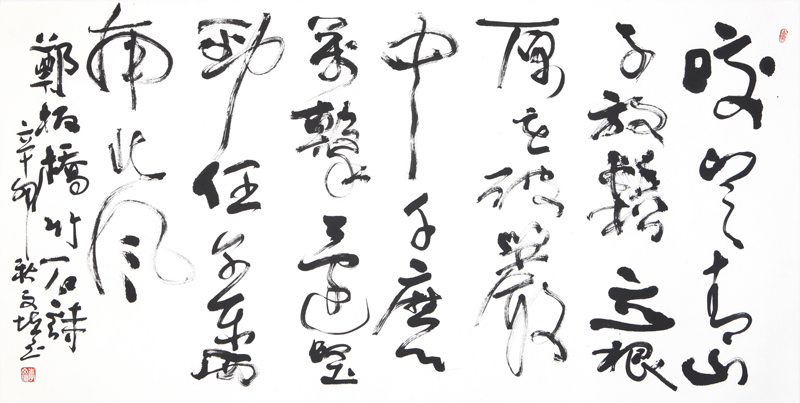 咬定青山
不放鬆立根
原在破巖
中千磨
萬擊還堅
勁任尔東西
南北风
鄭板橋竹石詩
辛卯秋文